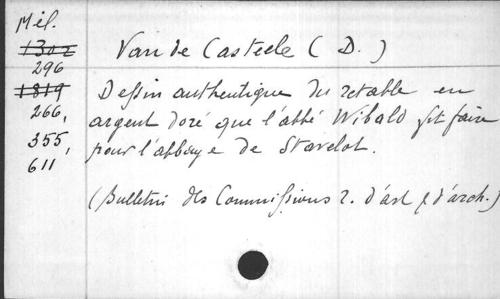 Mél.
1302
296
1819
266,
355,
611
Van de Casteele (D.)
Dessin authentique du retable en
argent doré que l'abbé Wibald fit faire
pour l'abbaye de Stavelot.
(Bulletin des Commissions r. d'art & d'arch.)